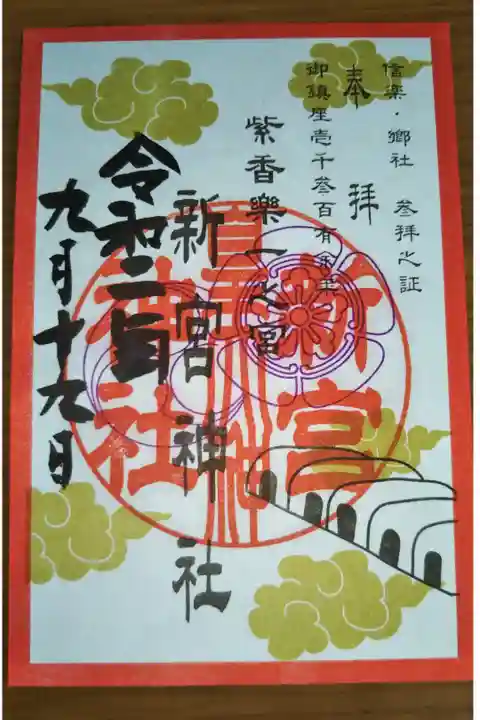 信楽・郷社 叁拝之証
奉拝
御鎮座壱千叁百有余年
紫香樂一之宮
新宮神社
令和二年
九月十九日
新宮
神社